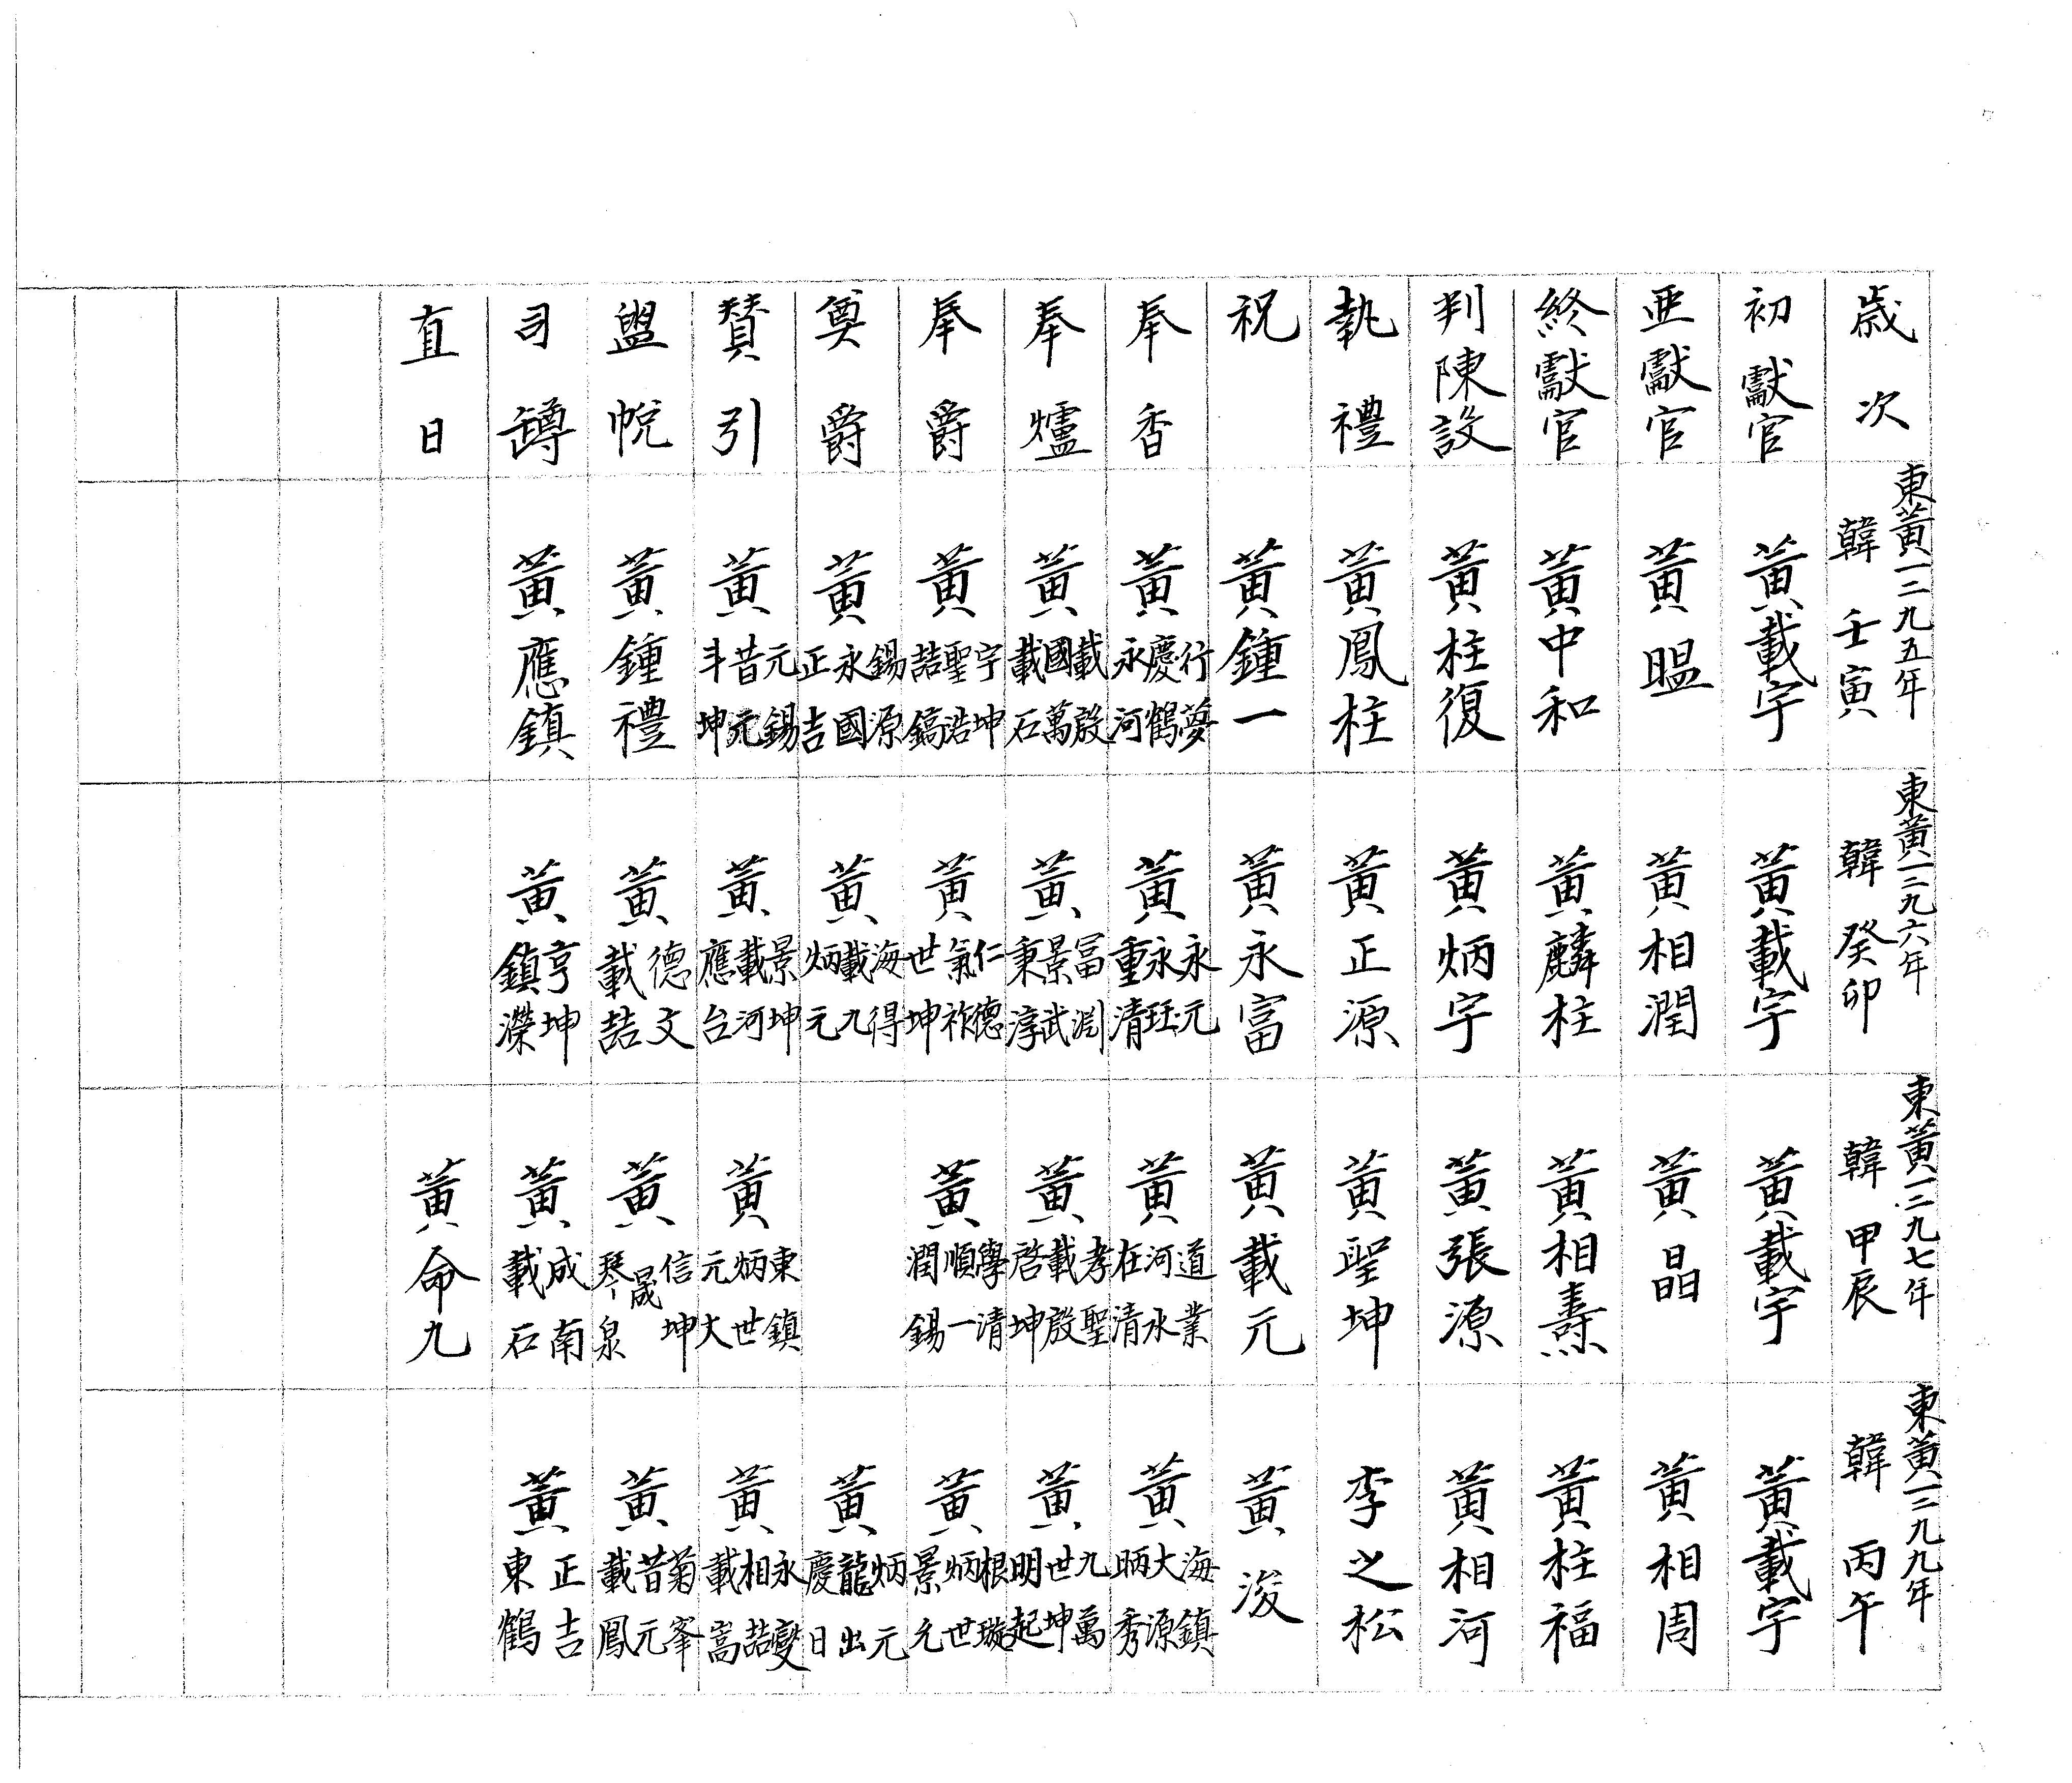 歲次
初獻官
亞獻官
終獻官
判陳設
執禮
祝
奉香
奉爐
奉爵
奠爵
贊引
盥帨
司罇
直日
東黃一二九五年
韓 壬寅
黃載宇
黃昷
黃中和
黃柱復
黃鳳柱
黃鍾一
黃 行夢 慶鶴 永河
黃 載殷 國萬 載石
黃 宇坤 聖浩 喆鎬
黃 錫源 永國 正吉
黃 元錫 昔元 斗坤
黃鍾禮
黃應鎮
東黃一二九六年
韓 癸卯
黃載宇
黃相潤
黃麟柱
黃炳宇
黃正源
黃永富
黃 永元 永珏 重清
黃 冨渕 景武 秉淳
黃 仁德 氣祚 世坤
黃 海得 載九 炳元
黃 景坤 載河 應台
黃 德文 載喆
黃 亨坤 鎮濚
東黃一二九七年
韓 甲辰
黃載宇
黃晶
黃相燾
黃張源
黃聖坤
黃載元
黃 道業 河水 在清
黃 孝聖 載殷 啓坤
黃 學清 順一 潤錫
黃 東鎮 炳世 元大
黃 信坤 晟 琴泉
黃 成南 載石
黃命九
東黃一二九九年
韓 丙午
黃載宇
黃相周
黃柱福
黃相河
李之松
黃浚
黃 海鎮 大源 昞秀
黃 九萬 世坤 明起
黃 根璇 炳世 景允
黃 炳元 龍出 慶日
黃 永燮 相喆 載嵩
黃 菊峯 昔元 載鳳
黃 正吉 東鶴